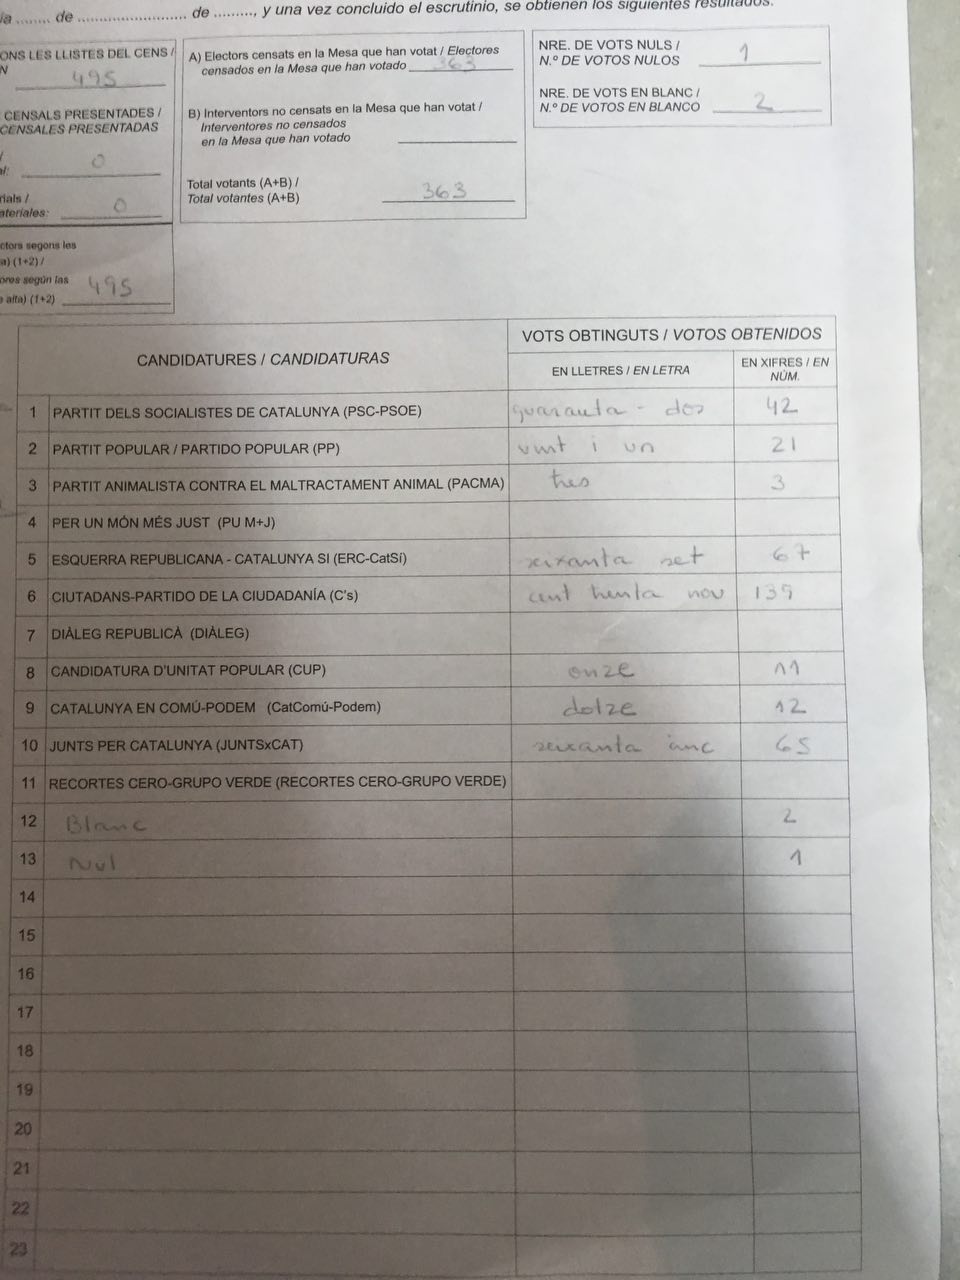 de ........................... de ........., y una vez concluido el escrutinio, se obtienen los siguientes resultados:
ONS LES LLISTES DEL CENS /
N
495
CENSALS PRESENTADES /
CENSALES PRESENTADAS
/
al: 0
rials /
ateriales: 0
ctors segons les
a) (1+2) /
ores según las
e alta) (1+2) 495
A) Electors censats en la Mesa que han votat / Electores
censados en la Mesa que han votado 363
B) Interventors no censats en la Mesa que han votat /
Interventores no censados
en la Mesa que han votado
Total votants (A+B) /
Total votantes (A+B) 363
NRE. DE VOTS NULS /
N.º DE VOTOS NULOS 1
NRE. DE VOTS EN BLANC /
N.º DE VOTOS EN BLANCO 2
CANDIDATURES / CANDIDATURAS
VOTS OBTINGUTS / VOTOS OBTENIDOS
EN LLETRES / EN LETRA
EN XIFRES / EN
NÚM.
1 PARTIT DELS SOCIALISTES DE CATALUNYA (PSC-PSOE) quaranta - dos 42
2 PARTIT POPULAR / PARTIDO POPULAR (PP) vint i un 21
3 PARTIT ANIMALISTA CONTRA EL MALTRACTAMENT ANIMAL (PACMA) tres 3
4 PER UN MÓN MÉS JUST (PU M+J)
5 ESQUERRA REPUBLICANA - CATALUNYA SI (ERC-CatSí) seixanta set 67
6 CIUTADANS-PARTIDO DE LA CIUDADANÍA (C's) cent trenta nou 139
7 DIÀLEG REPUBLICÀ (DIÀLEG)
8 CANDIDATURA D'UNITAT POPULAR (CUP) onze 11
9 CATALUNYA EN COMÚ-PODEM (CatComú-Podem) dotze 12
10 JUNTS PER CATALUNYA (JUNTSxCAT) seixanta cinc 65
11 RECORTES CERO-GRUPO VERDE (RECORTES CERO-GRUPO VERDE)
12 Blanc 2
13 Nul 1
14
15
16
17
18
19
20
21
22
23